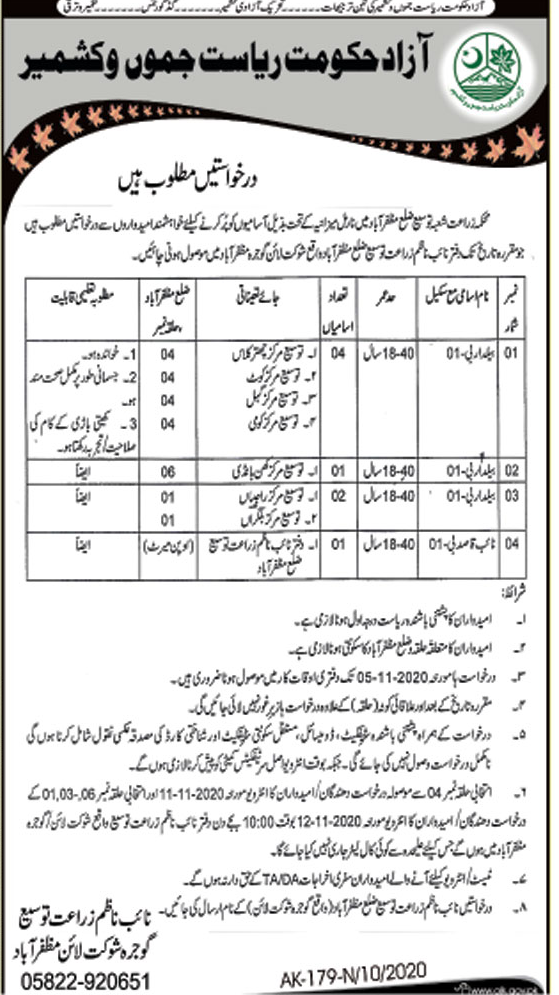 آزاد حکومت ریاست جموں و کشمیر کی تین ترجیحات ........ تحریک آزادی کشمیر ........ گڈ گورننس ........ تعمیر و ترقی
آزاد حکومت ریاست جموں و کشمیر
درخواستیں مطلوب ہیں
محکمہ زراعت شعبہ توسیع ضلع مظفرآباد میں نارمل میزانیہ کے تحت بذیل آسامیوں کو پُر کرنے کیلئے خواہشمند امیدواروں سے درخواستیں مطلوب ہیں
جو مقررہ تاریخ تک دفتر نائب ناظم زراعت توسیع ضلع مظفرآباد واقع شوکت لائن گوجرہ مظفرآباد میں موصول ہونی چاہئیں۔
نمبر شمار | نام اسامی مع سکیل | حد عمر | تعداد اسامیاں | جائے تعیناتی | ضلع مظفرآباد، حلقہ نمبر | مطلوبہ تعلیمی قابلیت
01 | بیلدار بی-01 | 18-40 سال | 04 | ۱۔ توسیع مرکز چھتر کلاس | 04 | 1۔ خواندہ ہو۔
۲۔ توسیع مرکز کوٹ | 04 | 2۔ جسمانی طور پر مکمل صحت مند
۳۔ توسیع مرکز گیل | 04 | ہو۔
۴۔ توسیع مرکز کومی | 04 | 3۔ کھیتی باڑی کے کام کی
صلاحیت/تجربہ رکھتا ہو۔
02 | بیلدار بی-01 | 18-40 سال | 01 | ۱۔ توسیع مرکز کھن بانڈی | 06 | ایضاً
03 | بیلدار بی-01 | 18-40 سال | 02 | ۱۔ توسیع مرکز | 01 | ایضاً
۲۔ توسیع مرکز بلگراں | 01
04 | نائب قاصد بی-01 | 18-40 سال | 01 | ۱۔ دفتر نائب ناظم زراعت توسیع | (اوپن میرٹ) | ایضاً
ضلع مظفرآباد
شرائط:
۱۔ امیدواران کا پشتنی باشندہ ریاست درجہ اول ہونا لازمی ہے۔
۲۔ امیدواران کا متعلقہ حلقہ و ضلع مظفرآباد کا سکونتی ہونا لازمی ہے۔
۳۔ درخواست ہا مورخہ 05-11-2020 تک دفتری اوقات کار میں موصول ہونا ضروری ہیں۔
۴۔ مقررہ تاریخ کے بعد اور علاقائی کوٹہ (حلقہ) کے علاوہ درخواست ہا زیر غور نہیں لائی جائیں گی۔
۵۔ درخواست کے ہمراہ پشتنی باشندہ سرٹیفکیٹ، ڈومیسائل، مستقل سکونتی سرٹیفکیٹ اور شناختی کارڈ کی مصدقہ عکسی نقول شامل کرنا ہوں گی
نامکمل درخواست وصول نہیں کی جائے گی۔ جبکہ بوقت انٹرویو اصل سرٹیفکیٹس کمیٹی کو پیش کرنا لازمی ہوں گے۔
۶۔ انتخابی حلقہ نمبر 04 سے موصولہ درخواست دھندگان/امیدواران کا انٹرویو مورخہ 11-11-2020 اور انتخابی حلقہ نمبر 06، 03، 01 کے
درخواست دھندگان/امیدواران کا انٹرویو مورخہ 12-11-2020 بوقت 10:00 بجے دن دفتر نائب ناظم زراعت توسیع واقع شوکت لائن/گوجرہ
مظفرآباد میں ہوں گے جس کیلئے علیحدہ سے کوئی کال لیٹر جاری نہیں کیا جائے گا۔
۷۔ ٹیسٹ/انٹرویو کیلئے آنے والے امیدواران سفری اخراجات TA/DA کے حق دار نہ ہوں گے۔
۸۔ درخواستیں نائب ناظم زراعت توسیع ضلع مظفرآباد (واقع گوجرہ شوکت لائن) کے نام ارسال کی جائیں۔
نائب ناظم زراعت توسیع
گوجرہ شوکت لائن مظفرآباد
05822-920651
AK-179-N/10/2020
www.ajk.gov.pk